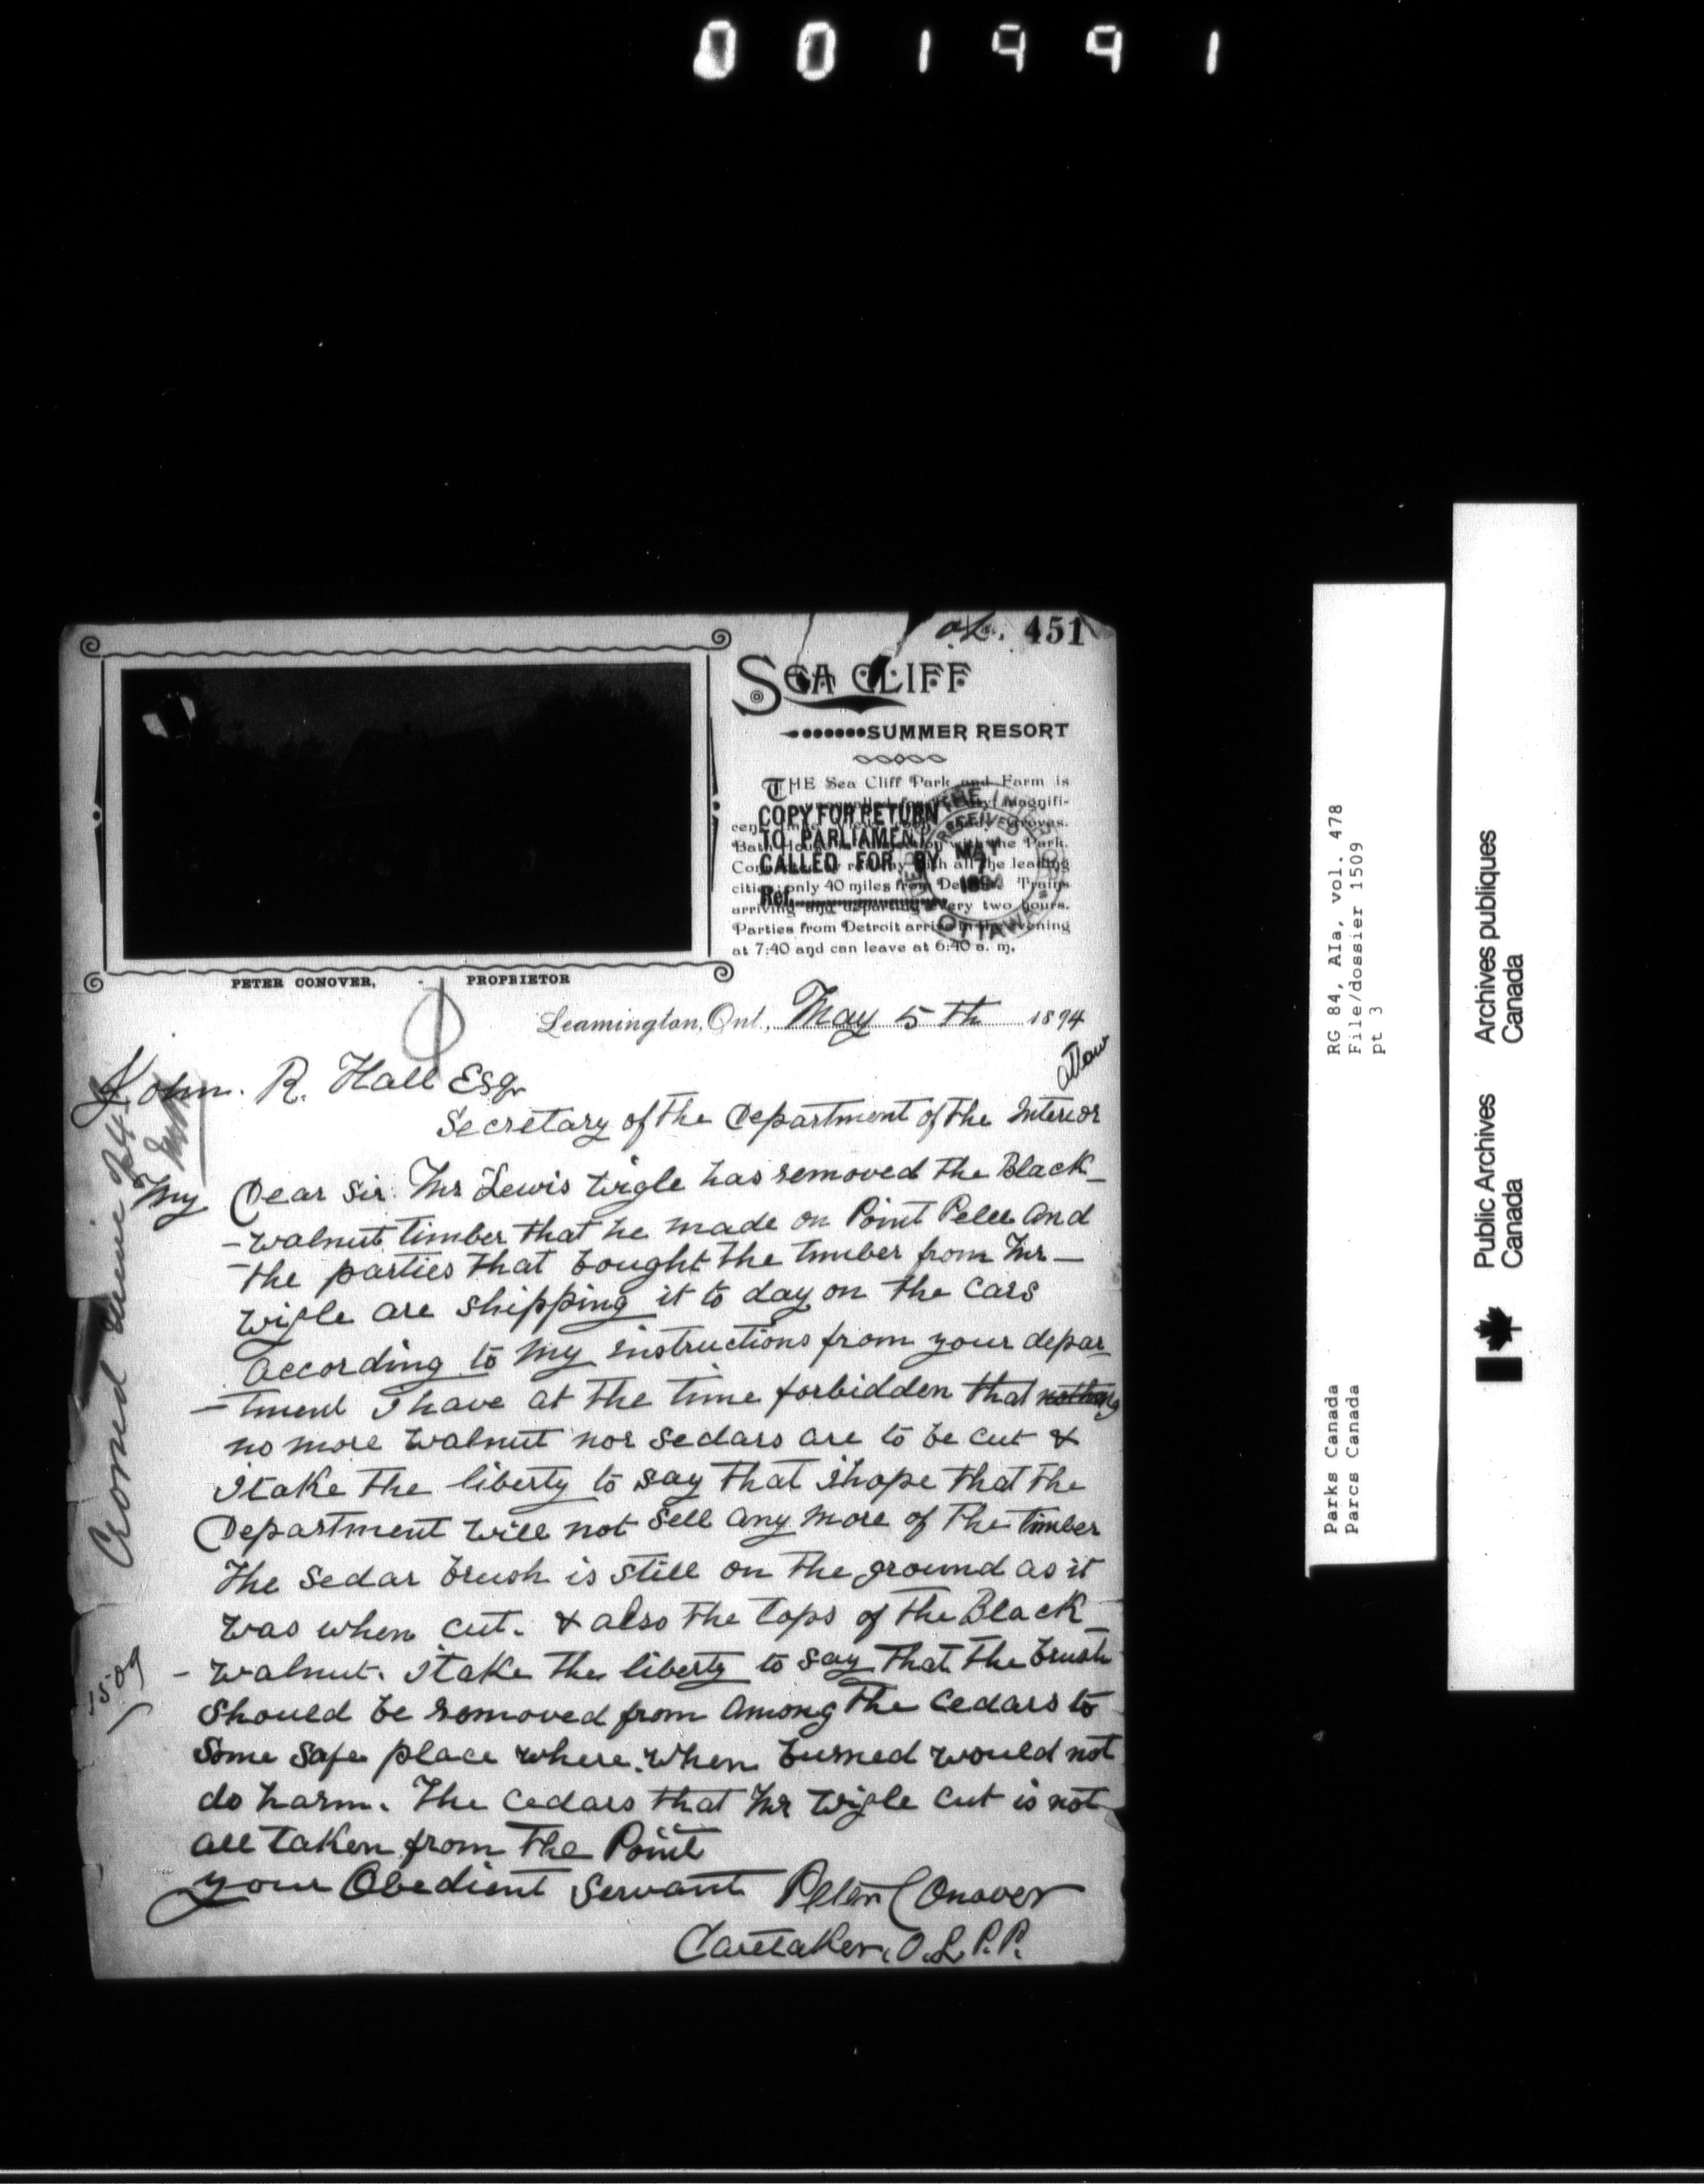 001991
451
SEA CLIFF
SUMMER RESORT
THE Sea Cliff Park and Farm is
Magnifi-
Groves.
Bath House with the Park.
with all the leading
cities; only 40 miles from Detroit. Trains
arriving and departing every two hours.
Parties from Detroit arrive in the evening
at 7:40 and can leave at 6:40 a. m.
COPY FOR RETURN
TO PARLIAMENT
CALLED FOR BY
Ref.
RECEIVED
MAY
7
OTTAWA
PETER CONOVER, PROPRIETOR
Leamington, Ont., May 5th 1894
John. R. Hall Esqr
Secretary of the Department of the Interior
My Dear Sir. Mr Lewis Wigle has removed the Black-
-walnut timber that he made on Point Pelee and
-the parties that bought the timber from Mr-
Wigle are shipping it to day on the cars
according to my instructions from your depar-
-tment I have at the time forbidden that nothing
no more walnut nor sedars are to be cut &
I take the liberty to say that I hope that the
Department will not sell any more of the timber
The sedar brush is still on the ground as it
was when cut. & also the tops of the Black
-walnut. I take the liberty to say that the brush
should be removed from among the cedars to
some safe place where when burned would not
do harm. The cedars that Mr Wigle cut is not
all taken from the Point
your Obedient Servant Peter Conover
Caretaker. O.L.P.P.
1509
RG 84, AIa, vol. 478
File/dossier 1509
pt 3
Parks Canada
Parcs Canada
Public Archives
Canada
Archives publiques
Canada